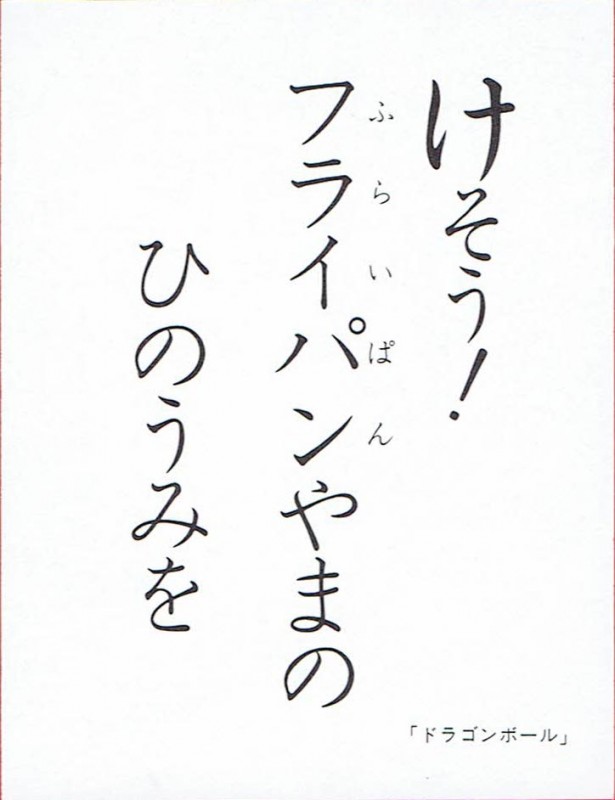 けそう！
フライパンやまの
ふらいぱん
ひのうみを
「ドラゴンボール」